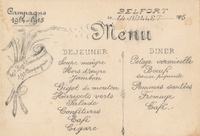 Campagne
1914-1915
BELFORT
14 JUILLET
Menu
DEJEUNER
Soupe
Hors d'œuvre
Jambon
Gigot de mouton
Haricots verts
Salade
Confitures
Café
Cigare
DINER
Potage vermicelle
Bœuf
Pommes sautées
Fromage
Café